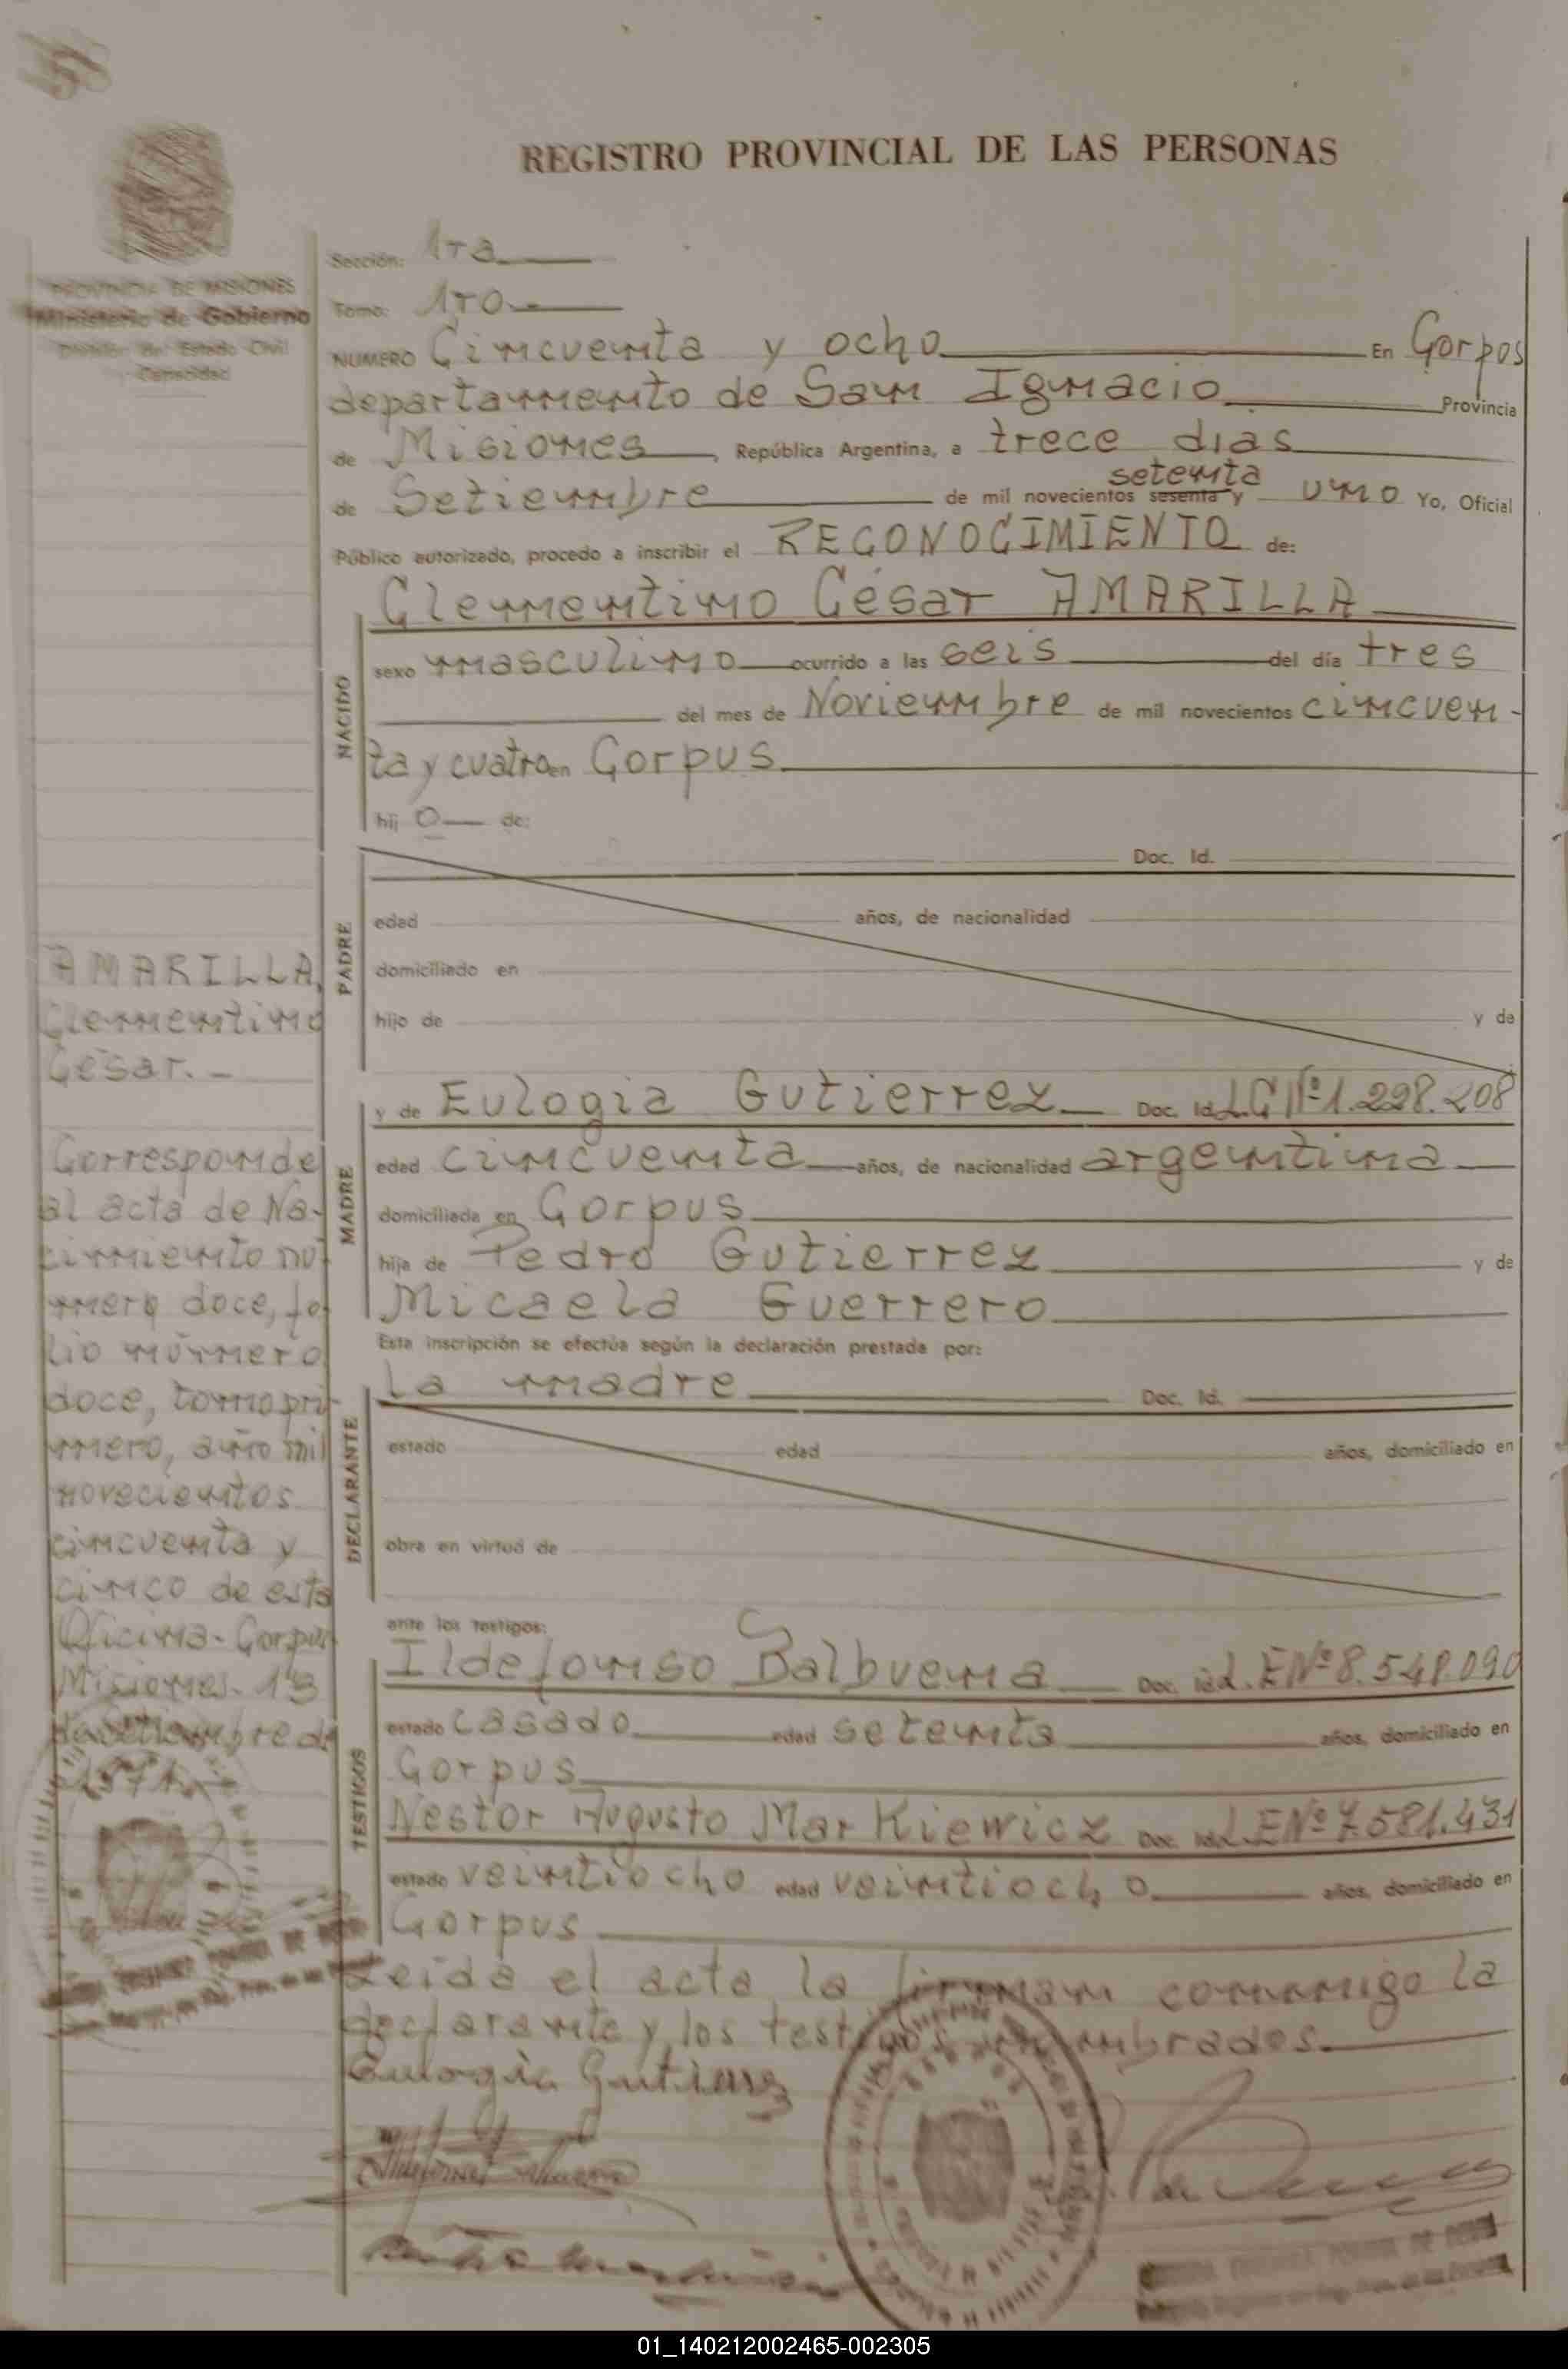 58
REGISTRO PROVINCIAL DE LAS PERSONAS
PROVINCIA DE MISIONES
Ministerio de Gobierno
División de Estado Civil
Capacidad
Sección: 1ra
Tomo: 1ro
NUMERO Cincuenta y ocho En Corpos
departamento de San Ignacio Provincia
de Misiones, República Argentina, a trece dias
setenta
de Setiembre de mil novecientos sesenta y uno Yo, Oficial
Público autorizado, procedo a inscribir el RECONOCIMIENTO de:
NACIDO
Clementino César AMARILLA
sexo masculino ocurrido a las seis del día tres
del mes de Noviembre de mil novecientos cincuen-
ta y cuatro en Corpus
hij o de:
PADRE
Doc. Id.
edad años, de nacionalidad
domiciliado en
hijo de y de
MADRE
y de Eulogia Gutierrez Doc. Id. L.C Nº 1.298.208
edad cincuenta años, de nacionalidad argentina
domiciliada en Corpus
hija de Pedro Gutierrez y de
Micaela Guerrero
Esta inscripción se efectúa según la declaración prestada por:
DECLARANTE
la madre Doc. Id.
estado edad años, domiciliado en
obra en virtud de
ante los testigos:
TESTIGOS
Ildefonso Balbuena Doc. Id. L.E Nº 8.548.090
estado casado edad setenta años, domiciliado en
Corpus
Nestor Augusto Markiewicz Doc. Id. L.E Nº 7.581.431
estado veintiocho edad veintiocho años, domiciliado en
Corpus
Leida el acta la firman conmigo la
declarante y los testigos nombrados.
Eulogia Gutierrez
AMARILLA,
Clementino
César.-
Corresponde
al acta de Na-
cimiento nú-
mero doce, fo-
lio número
doce, tomo pri-
mero, año mil
novecientos
cincuenta y
cinco de esta
Oficina- Corpus
Misiones- 13
de Setiembre de
1971.-
01_140212002465-002305